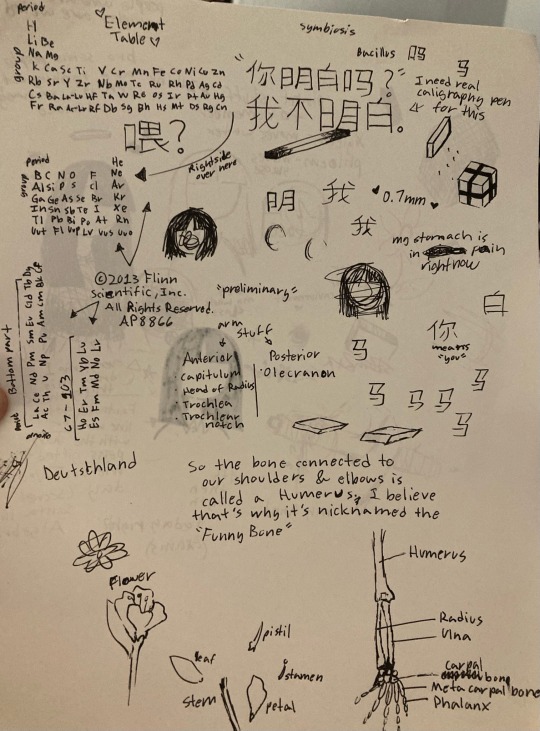 period
H
Li Be
Na Mg
K Ca Sc Ti V Cr Mn Fe Co Ni Cu Zn
Rb Sr Y Zr Nb Mo Tc Ru Rh Pd Ag Cd
Cs Ba La-Lu Hf Ta W Re Os Ir Pt Au Hg
Fr Ra Ac-Lr Rf Db Sg Bh Hs Mt Ds Rg Cn
group
"Element
Table"
symbiosis
Bacillus 吗
"你明白吗?"
我不明白。
马
I need real
caligraphy pen
for this
喂?
Rightside
over here
period
He
B C N O F Ne
Al Si P S Cl Ar
Ga Ge As Se Br Kr
In Sn Sb Te I Xe
Tl Pb Bi Po At Rn
Uut Fl Uup Lv Uus Uuo
group
明 我
我
0.7mm
my stomach is
in pain
right now
©2013 Flinn
Scientific, Inc.
All Rights Reserved.
AP8866
"preliminary"
白
你
means
"you"
Bottom part
La Ce Nd Pm Sm Eu Gd Tb Dy
Ac Th U Np Pu Am Cm Bk Cf
Ho Er Tm Yb Lu
Es Fm Md No Lr
arm
stuff
Anterior
capitulum
Head of Radius
Trochlea
Trochlear
notch
Posterior
Olecranon
马
马
马 马
马
Deutsthland
So the bone connected to
our shoulders & elbows is
called a Humerus, I believe
that's why it's nicknamed the
"Funny Bone"
flower
pistil
leaf
stamen
stem
petal
Humerus
Radius
Ulna
carpal
bone
Meta carpal bone
Phalanx